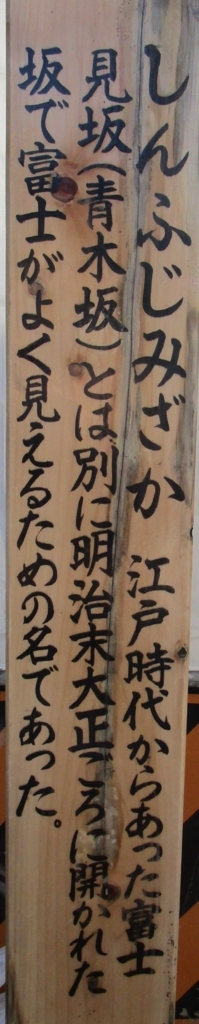 しんふじみざか 江戸時代からあった富士
見坂(青木坂)とは別に明治末大正ごろに開かれた
坂で富士がよく見えるための名であった。